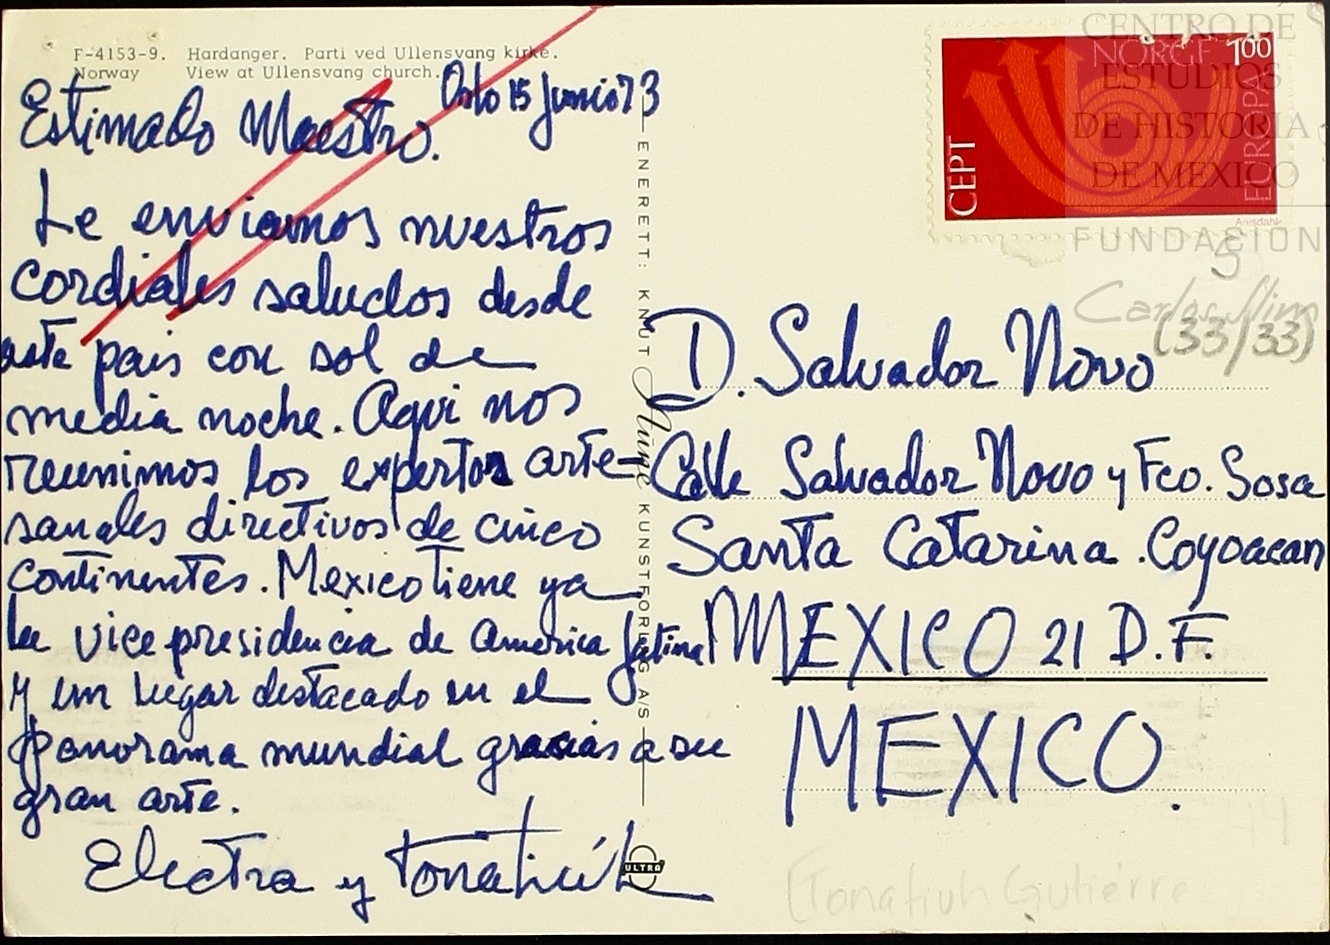 F-4153-9. Hardanger. Parti ved Ullensvang kirke.
Norway View at Ullensvang church.
Oslo 15 Junio 73
Estimado Maestro.
Le enviamos nuestros
cordiales saludos desde
este pais con sol de
media noche. Aqui nos
reunimos los expertos arte-
sanales directivos de cinco
continentes. Mexico tiene ya
la vice presidencia de America Latina
y un lugar destacado en el
panorama mundial gracias a su
gran arte.
Electra y Tonatiúh
ENERETT: KNUT Aune KUNSTFORLAG A/S
ULTRA
NORGE 100
CEPT
EUROPA
CENTRO DE
ESTUDIOS
DE HISTORIA
DE MEXICO
FUNDACION
Carlos Slim
5
(33/33)
D. Salvador Novo
Calle Salvador Novo y Fco. Sosa
Santa Catarina. Coyoacan
MEXICO 21 D.F.
MEXICO.
(Tonatiuh Gutiérre